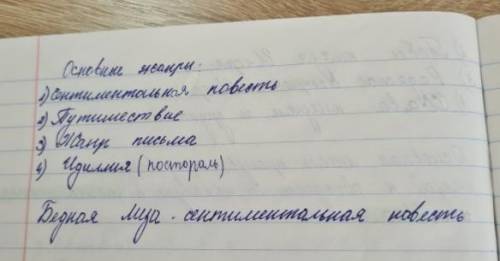 Основные жанры:
1) Сентиментальная повесть
2) Путишествие
3) Жанр письма
4) Идиллия (постораль)
Бедная Лиза - сентиментальная повесть